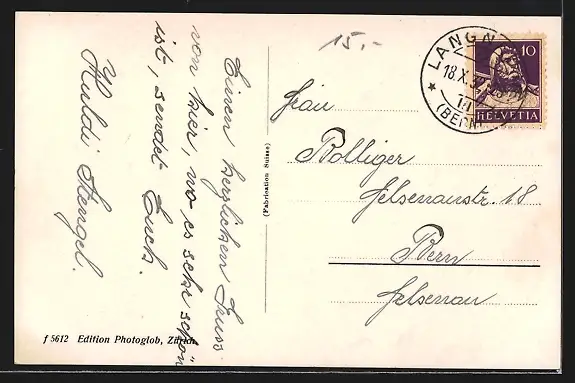 Einen herzlichen Gruss
von hier, wo es sehr schön
ist, sendet Euch.
Huldi Stengel.
15.-
(Fabrication Suisse)
LANGN
18.X.
(BERN)
10
HELVETIA
Frau
Bolliger
Felsenaustr. 18
Bern
Felsenau
f 5612 Edition Photoglob, Zürich